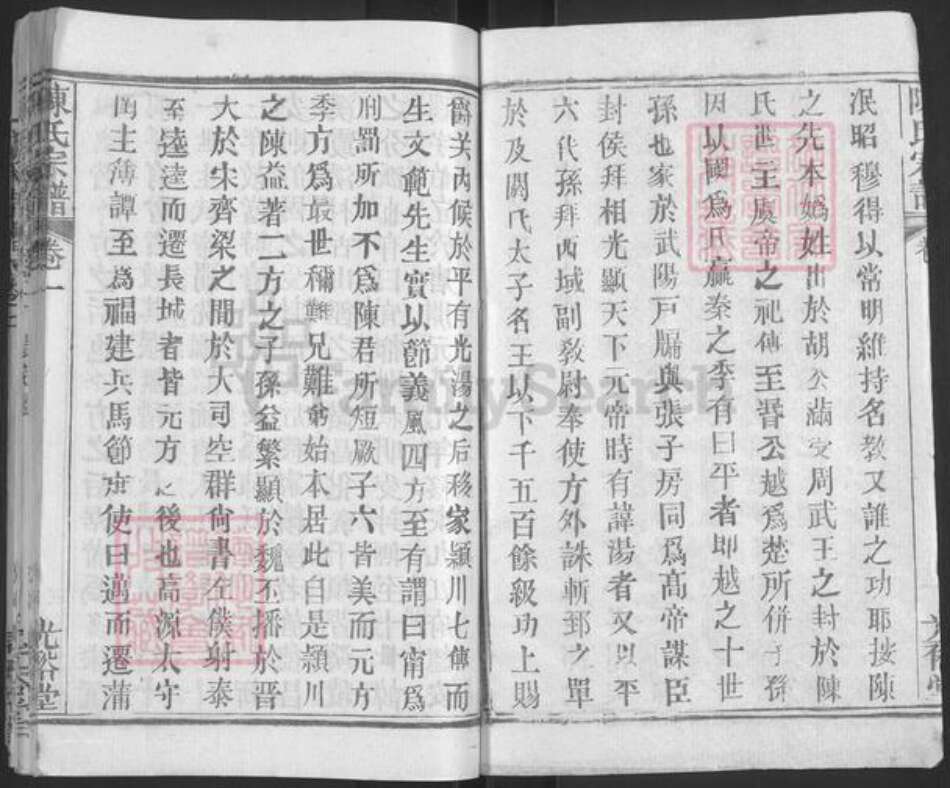 泯昭穆得以常明維持名教又誰之功耶按陳
之先本媯姓出於胡公滿受周武王之封於陳
氏世主虞帝之祀傳至晋公越爲楚所併子孫
因以國爲氏嬴秦之李有曰平者即越之十世
孫也家於武陽戶牖與張子房同爲高帝謀臣
封侯拜相光顯天下元帝時有諱湯者又以平
六代孫拜西域副教尉奉使方外誅斬郅之單
於及閼氏太子名王以下千五百餘級功上賜
爵关內候於平有光湯之后移家潁川七傳而
生文範先生實以節義風四方至有謂曰甯爲
刑罰所加不爲陳君所短厥子六皆美而元方
季方爲最世稱難兄難弟始本居此自是潁川
之陳益著二方之子孫益繁顯於魏丕播於晉
大於宋齊梁之間於大司空群尙書左僕射泰
至逵逵而遷長城者皆元方之後也高源太守
主薄譚至爲福建兵馬節度使曰邁而遷蒲
陳氏宗譜
卷一
光裕堂
FamilySearch